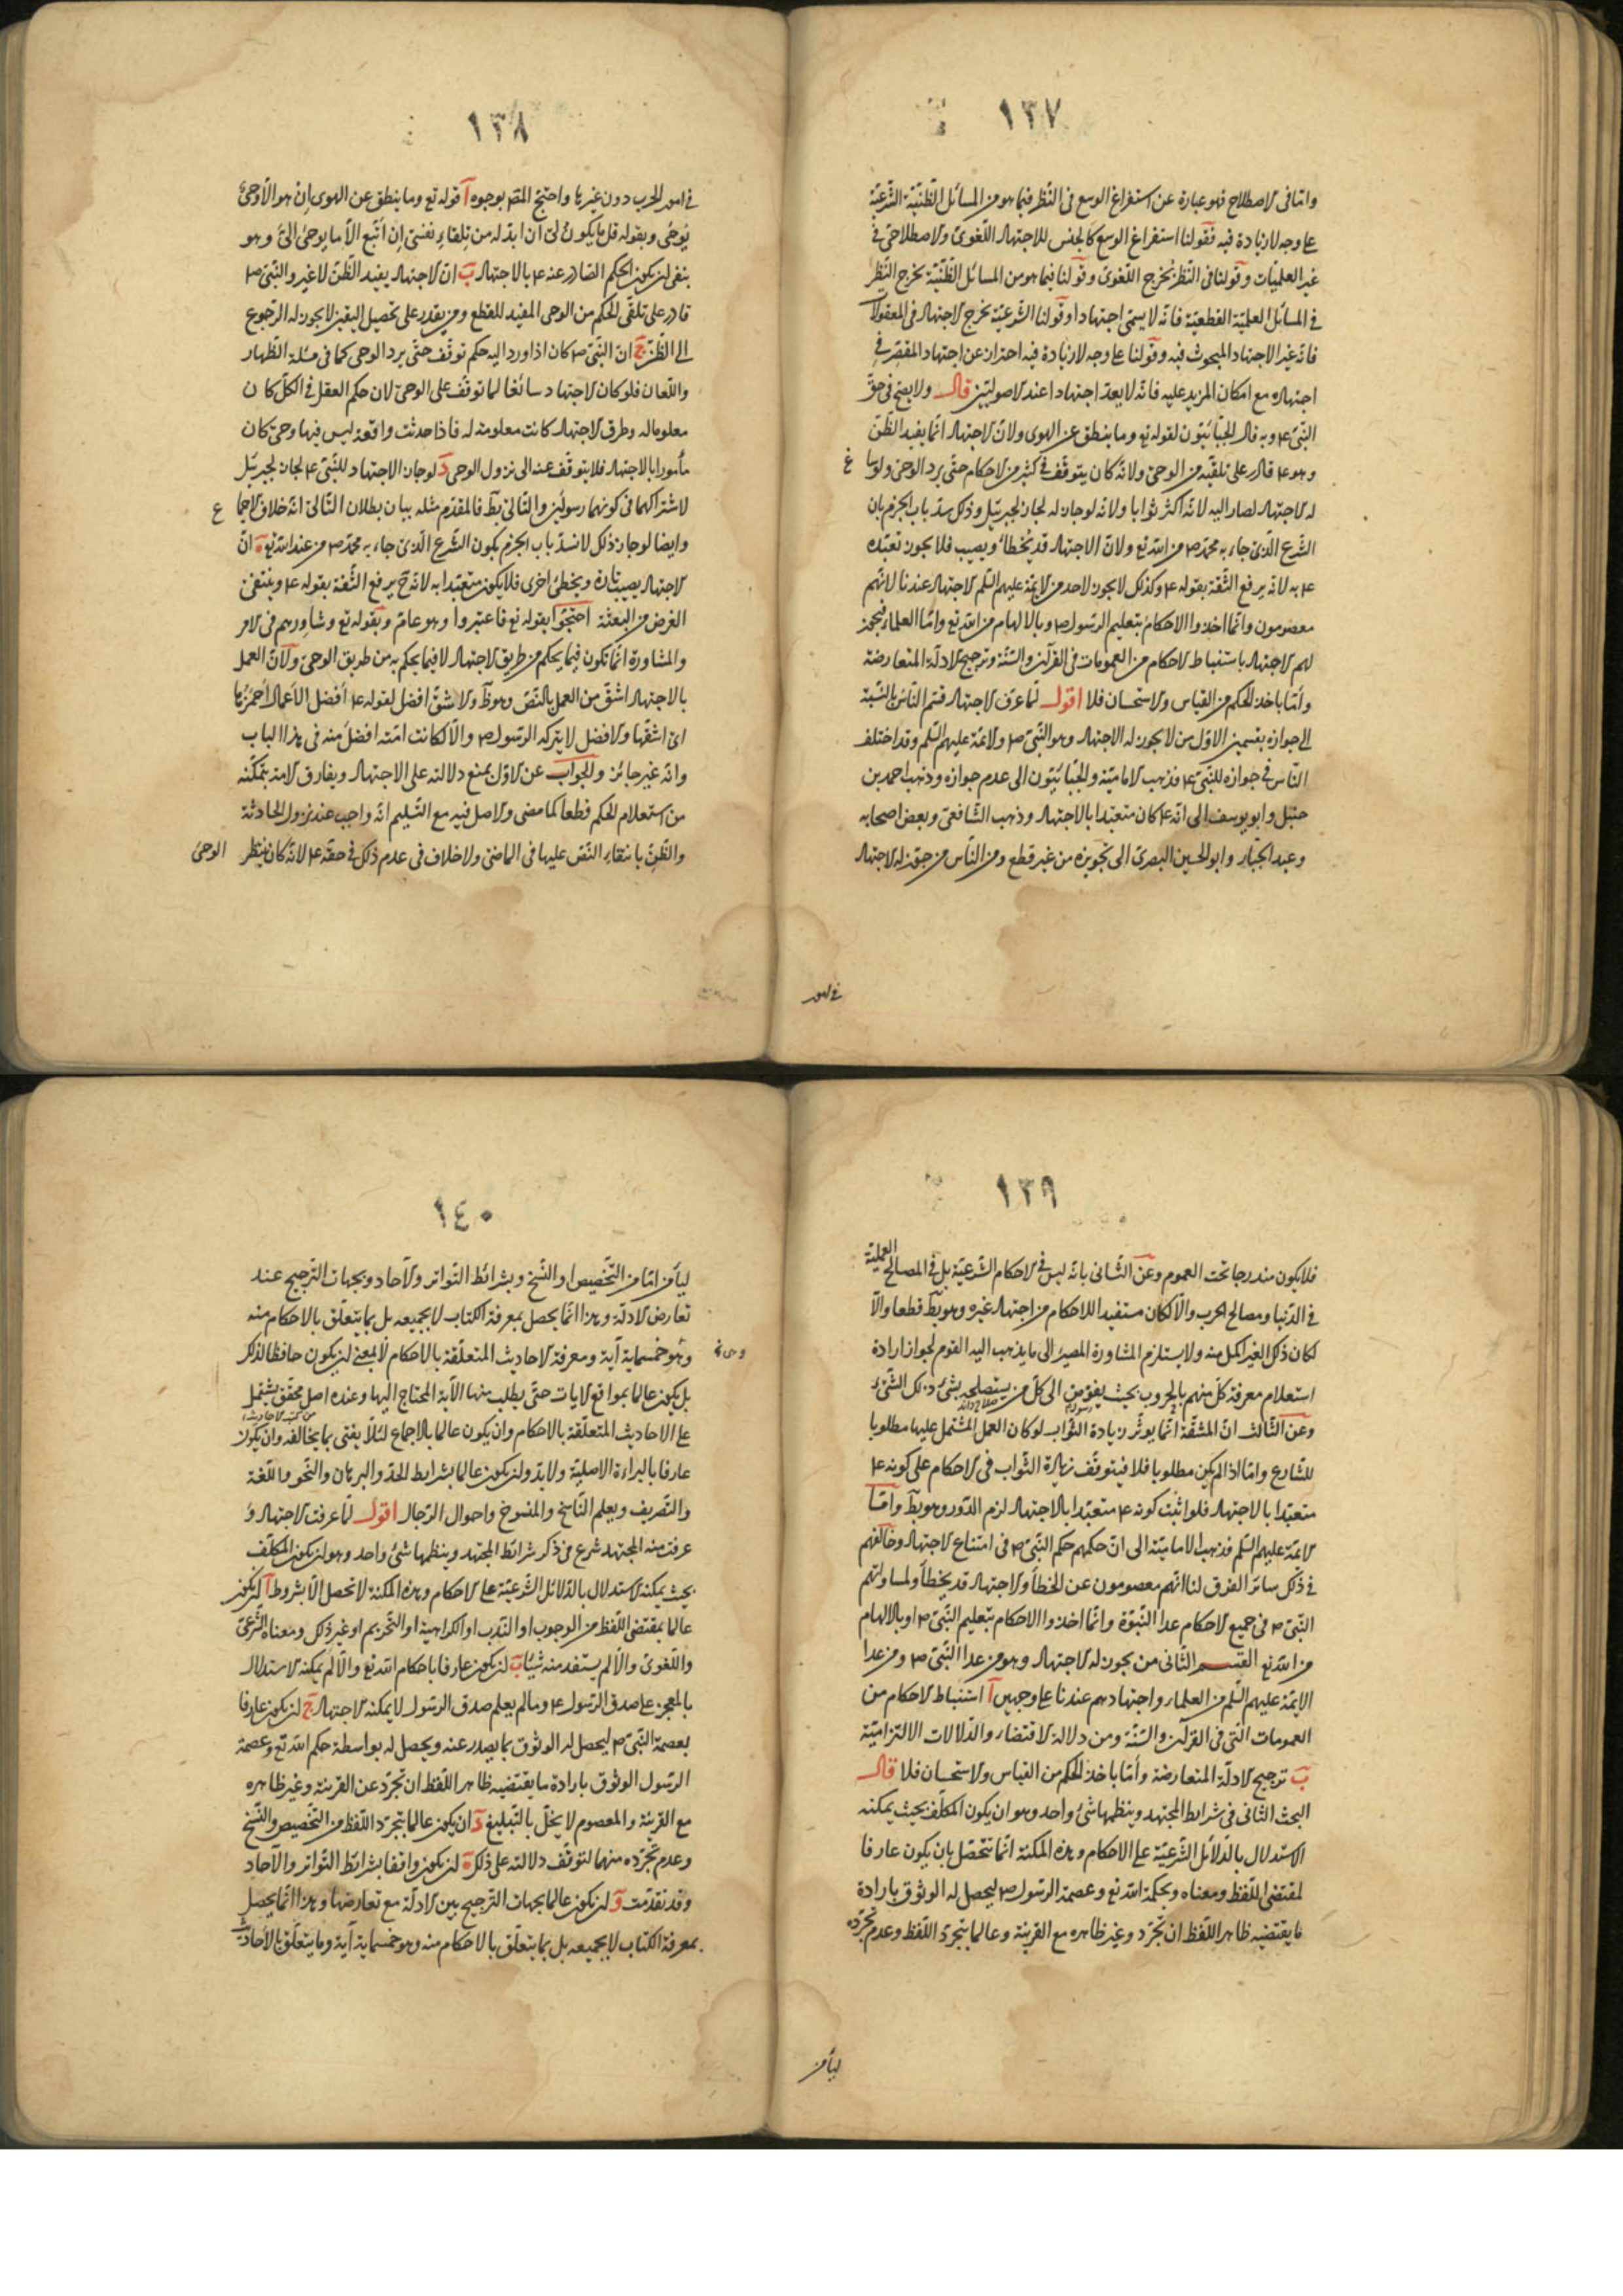 ١٣٧
واما فى الاصطلاح فهو عبارة عن استفراغ الوسع فى النظر فيما هو من المسائل الظنيّة الشرعيّة
على وجه لا زيادة فيه فقولنا استفراغ الوسع كالجنس للاجتهاد اللّغوى والاصطلاحى فى
غير العلميّات وقولنا فى النظر يخرج اللّغوى وقولنا فيما هو من المسائل الظنّيّة يخرج النظر
فى المسائل العلميّة القطعيّة فانّه لا يسمّى اجتهادا وقولنا الشرعيّة يخرج الاجتهاد فى المعقولات
فانه غير الاجتهاد المبحوث فيه وقولنا على وجه لا زيادة فيه احتراز عن اجتهاد المقصّر فى
اجتهاده مع امكان المزيد عليه فانّه لا يعدّ اجتهادا عند الاصوليّين قال ولا يصح فى حقّ
النّبىّ ع م وبه قال الجبّائيّون لقوله تع وما ينطق عن الهوى ولانّ الاجتهاد انّما يفيد الظنّ
وهو ع م قادر على تلقّيه من الوحى ولانّه كان يتوقّف فى كثير من الاحكام حتّى يرد الوحى ولو ساغ
له الاجتهاد لصار اليه لانّه اكثر ثوابا ولانّه لو جاز له لجاز لجبرئيل وذلك سدّ باب الجزم بان
الشّرع الذى جاء به محمّد ص من الله تع ولانّ الاجتهاد قد يخطأ ويصيب فلا يجوز تعبّده
ع م به لانّه يرفع الثّقة بقوله ع م وكذلك لا يجوز لاحد من الائمّة عليهم السّلم الاجتهاد عندنا لانّهم
معصومون وانّما اخذوا الاحكام بتعليم الرّسول ص وبالالهام من الله تع وامّا العلماء فيجوز
لهم الاجتهاد باستنباط الاحكام من العمومات فى القرآن والسّنّة وترجيح الادلّة المتعارضة
وأمّا باخذ الحكم من القياس والاستحسان فلا اقول لمّا عرّف الاجتهاد قسّم النّاس بالنّسبة
الى جوازه بقسمين الاوّل من لا يجوز له الاجتهاد وهو النّبىّ ص والائمّة عليهم السّلم وقد اختلف
النّاس فى جوازه للنّبىّ ع م فذهب الاماميّة والجبّائيّون الى عدم جوازه وذهب احمد بن
حنبل وابو يوسف الى انّه ع م كان متعبّدا بالاجتهاد وذهب الشّافعى وبعض اصحابه
وعبد الجبّار وابو الحسين البصرىّ الى تجويزه من غير قطع ومن النّاس من جوّز له الاجتهاد
فى امور
١٣٨
فى امور الحرب دون غيرها واحتجّ المص بوجوه آ قوله تع وما ينطق عن الهوى إن هو الّا وحى
يوحى وبقوله قل ما يكون لى أن ابدّله من تلقاء نفسى إن أتّبع الّا ما يوحى الىّ وهو
ينفى ان يكون الحكم الصّادر عنه ع م بالاجتهاد ب انّ الاجتهاد يفيد الظّنّ لا غير والنّبىّ ص
قادر على تلقّى الحكم من الوحى المفيد للقطع ومن يقدر على تحصيل اليقين لا يجوز له الرّجوع
الى الظّنّ ج انّ النّبىّ ص كان اذا ورد اليه حكم توقّف حتّى يرد الوحى كما فى مسئلة الظّهار
واللّعان فلو كان الاجتهاد سائغا لما توقّف على الوحى لان حكم العقل فى الكلّ كان
معلوما له وطرق الاجتهاد كانت معلومة له فاذا حدثت واقعة ليس فيها وحى كان
مأمورا بالاجتهاد فلا يتوقّف عنه الى نزول الوحى د لو جاز الاجتهاد للنّبىّ ع م لجاز لجبرئيل
لاشتراكهما فى كونهما رسولين والتّالى بط فالمقدّم مثله بيان بطلان التّالى انّه خلاف الاجماع
وايضا لو جاز ذلك لانسدّ باب الجزم بكون الشّرع الّذى جاء به محمّد ص من عند الله تع ه انّ
الاجتهاد يصيب تارة ويخطى اخرى فلا يكون متعبّدا به لانّه ح يرفع الثّقة بقوله ع م وينتفى
الغرض من البعثة احتجّوا بقوله تع فاعتبروا وهو عامّ وبقوله تع وشاورهم فى الامر
والمشاورة انّما تكون فيما يحكم من طريق الاجتهاد لا فيما يحكم به من طريق الوحى ولانّ العمل
بالاجتهاد اشقّ من العمل بالنّصّ وهو ظ والاشقّ افضل لقوله ع م أفضل الأعمال أحمزها
اى اشقّها والافضل لا يتركه الرّسول ص والّا لكانت امّته افضل منه فى هذا الباب
وانّه غير جائز والجواب عن الاوّل بمنع دلالته على الاجتهاد ويفارق الامّة بتمكّنه
من استعلام الحكم قطعا كما مضى والاصل فيه مع التّسليم انّه واجب عند نزول الحادثة
والظّنّ بانتفاء النّصّ عليها فى الماضى ولا خلاف فى عدم ذلك فى حقّه ع م لانّه كان ينتظر الوحى
١٣٩
فلا يكون مندرجا تحت العموم وعن الثّانى بانّه ليس فى الاحكام الشّرعيّة بل فى المصالح العمليّة
فى الدّنيا ومصالح الحرب والّا لكان مستفيدا للاحكام من اجتهاد غيره وهو بط قطعا والّا
لكان ذلك الغير اكمل منه ولا يستلزم المشاورة المصير الى ما يذهب اليه القوم لجواز ارادة
استعلام معرفة كلّ منهم بالحروب بحيث يفوّض الى كلّ من يستصلحه بشىء ذلك الشّىء
وعن الثّالث انّ المشقّة انّما يوثّر زيادة الثّواب لو كان العمل المشتمل عليها مطلوبا
للشّارع وامّا اذا لم يكن مطلوبا فلا فيتوقّف زيادة الثّواب فى الاحكام على كونه ع م
متعبّدا بالاجتهاد فلو اثبت كونه ع م متعبّدا بالاجتهاد لزم الدّور وهو بط وامّا
الائمّة عليهم السّلم فذهب الاماميّة الى انّ حكمهم حكم النّبىّ ص فى امتناع الاجتهاد وخالفهم
فى ذلك سائر الفرق لنا انّهم معصومون عن الخطأ والاجتهاد قد يخطأ ولمساواتهم
النّبىّ ص فى جميع الاحكام عدا النّبوّة وانّما اخذوا الاحكام بتعليم النّبىّ ص او بالالهام
من الله تع القسم الثّانى من يجوز له الاجتهاد وهو من عدا النّبىّ ص ومن عدا
الايمّة عليهم السّلم من العلماء واجتهادهم عندنا على وجهين آ استنباط الاحكام من
العمومات الّتى فى القرآن والسّنّة ومن دلالة الاقتضاء والدّلالات الالتزاميّة
ب ترجيح الادلّة المتعارضة وأمّا باخذ الحكم من القياس والاستحسان فلا قال
البحث الثّانى فى شرائط المجتهد وينظمها شىء واحد وهو ان يكون المكلّف بحيث يمكنه
الاستدلال بالدّلائل الشّرعيّة على الاحكام وهذه المكنة انّما تتحصّل بان يكون عارفا
لمقتضى اللّفظ ومعناه وبحكمة الله تع وعصمة الرّسول ص ليحصل له الوثوق بارادة
ما يقتضيه ظاهر اللّفظ ان تجرّد وغير ظاهره مع القرينة وعالما بتجرّد اللّفظ وعدم تجرّده
ليأمن
١٤٠
ليأمن امّا من التّخصيص او النّسخ وبشرائط التّواتر والآحاد وبجهات التّرجيح عند
تعارض الادلّة وهذا انّما يحصل بمعرفة الكتاب لا بجميعه بل بما يتعلّق بالاحكام منه
وهو خمسماية آية ومعرفة الاحاديث المتعلّقة بالاحكام لا بمعنى ان يكون حافظا لذلك
بل يكون عالما بمواقع الايات حتّى يطلب منها الآية المحتاج اليها وعنده اصل محقّق يشتمل
على الاحاديث المتعلّقة بالاحكام وان يكون عالما بالاجماع لئلّا يفتى بما يخالفه وان يكون
عارفا بالبراءة الاصليّة ولا بدّ وان يكون عالما بشرايط الحدّ والبرهان والنّحو واللّغة
والتّصريف ويعلم النّاسخ والمنسوخ واحوال الرّجال اقول لمّا عرفت الاجتهاد و
عرفت منه المجتهد شرع فى ذكر شرائط المجتهد وينظمها شىء واحد وهو ان يكون المكلّف
بحيث يمكنه الاستدلال بالدّلائل الشّرعيّة على الاحكام وهذه المكنة لا تحصل الّا بشروط آ ان يكون
عالما بمقتضى اللّفظ من الوجوب او النّدب او الكراهية او التّحريم او غير ذلك ومعناه الشّرعى
واللّغوى والّا لم يستفد منه شيئا ب ان يكون عارفا باحكام الله تع والّا لم يمكنه الاستدلال
بالمعجز على صدق الرّسول ع م وما لم يعلم صدق الرّسول لا يمكنه الاجتهاد ج ان يكون عارفا
بعصمة النّبىّ ص ليحصل له الوثوق بما يصدر عنه ويحصل له بواسطة حكم الله تع وعصمة
الرّسول الوثوق بارادة ما يقتضيه ظاهر اللّفظ ان تجرّد عن القرينة وغير ظاهره
مع القرينة والمعصوم لا يخلّ بالتّبليغ د ان يكون عالما بتجرّد اللّفظ من التّخصيص والنّسخ
وعدم تجرّده منهما لتوقّف دلالته على ذلك ه ان يكون واقفا بشرائط التّواتر والآحاد
وقد تقدّمت و ان يكون عالما بجهات التّرجيح بين الادلّة مع تعارضها وهذا انّما يحصل
بمعرفة الكتاب لا بجميعه بل بما يتعلّق بالاحكام منه وهو خمسماية آية وما يتعلّق بالأحاديث